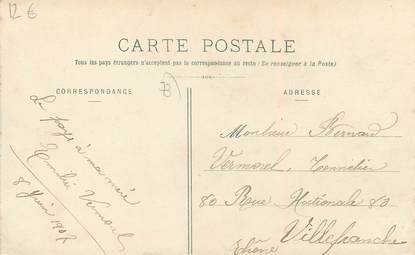 12 €
CARTE POSTALE
Tous les pays étrangers n'acceptent pas la correspondance au recto (Se renseigner à la Poste)
CORRESPONDANCE
B
ADRESSE
Le pays à ma mère
Vermorel
8 Juin 190
Monsieur Bernard
Vermorel, Tonnelier
80 Rue Nationale 80
Villefranche
Rhône